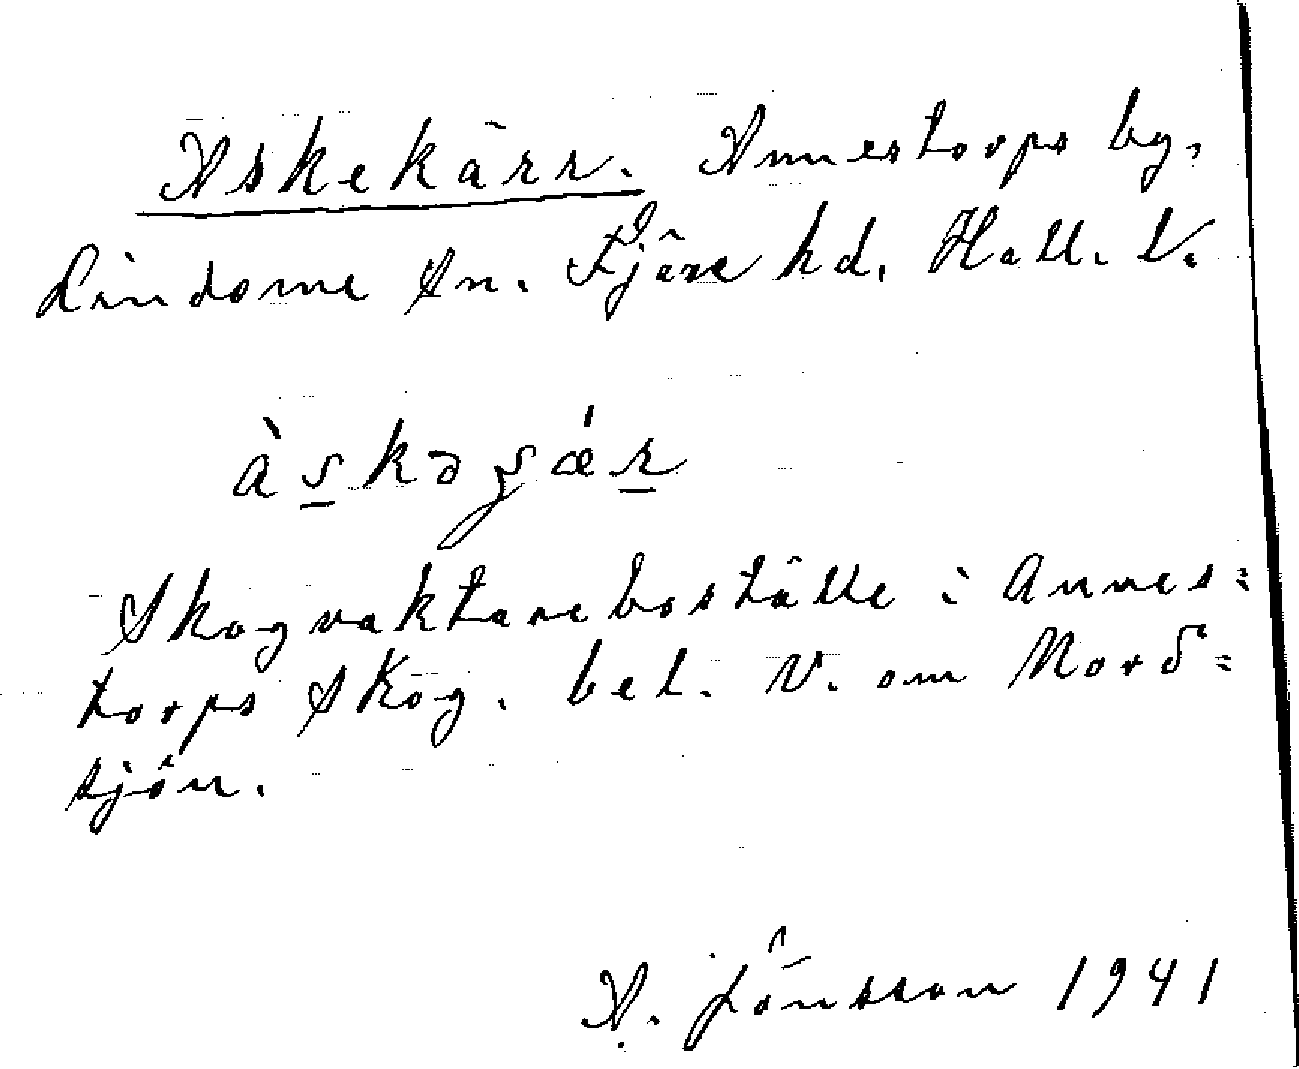 Askekärr. Annestorps by,
Lindome sn. Fjäre hd. Hall. V.
àskəgǽr
Skogvaktareboställe i Annes=
torps skog. bel. V. om Nord=
sjön.
A. Jönsson 1941